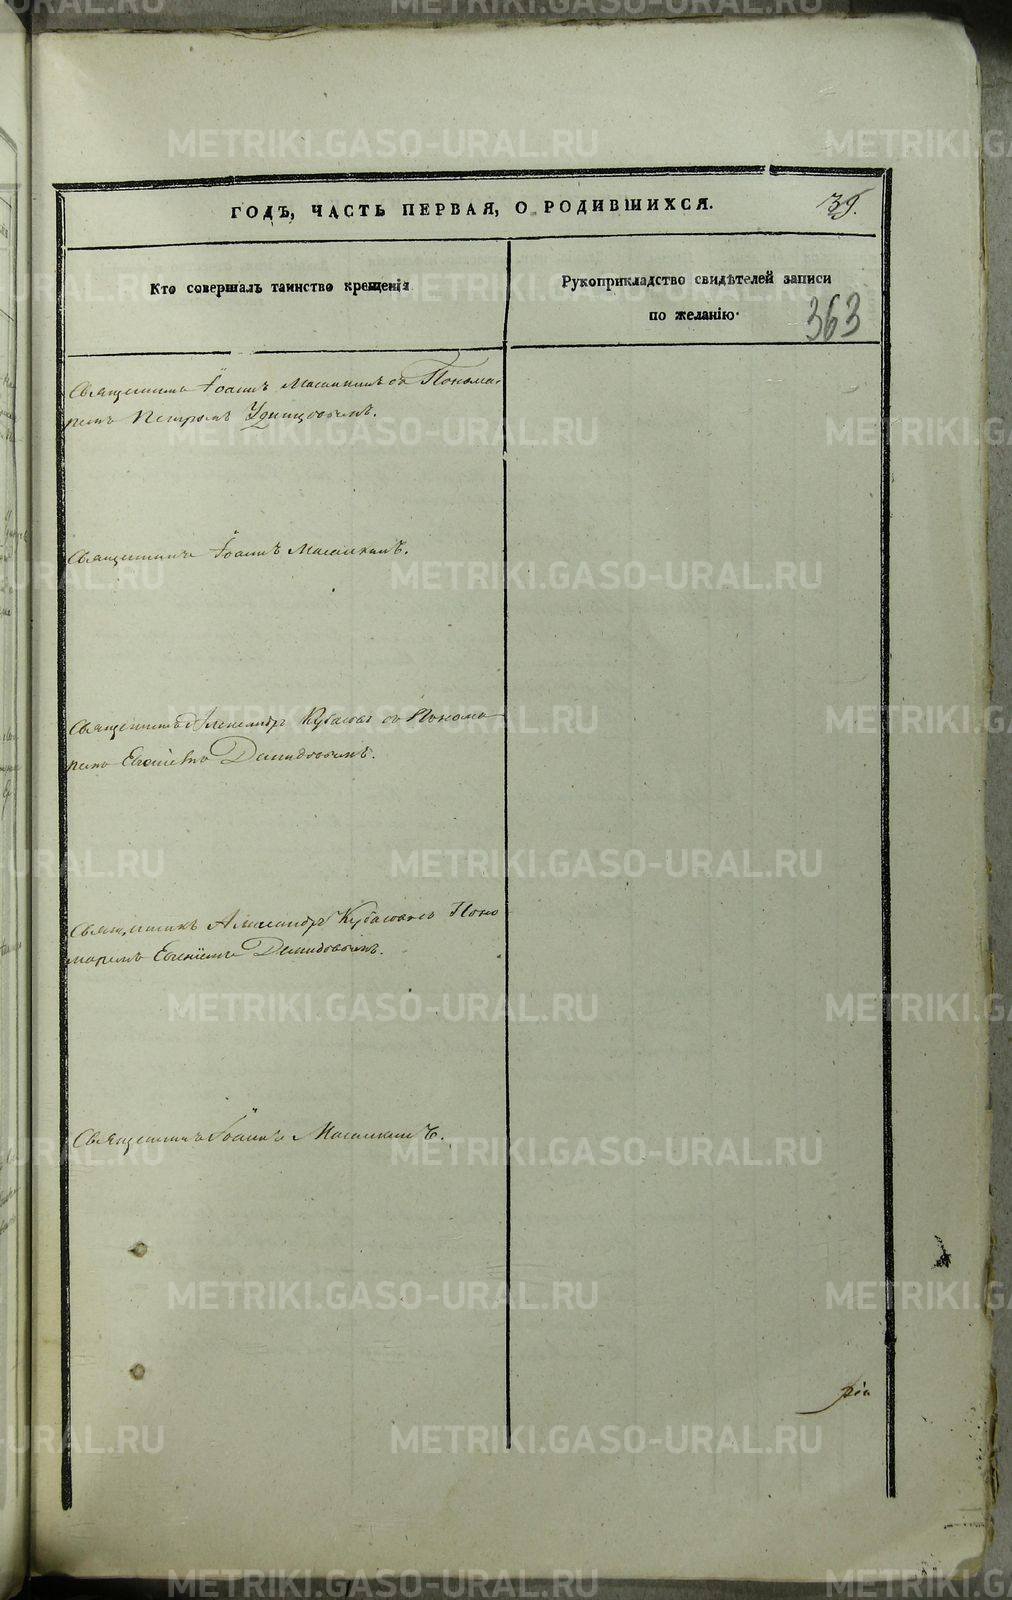 ГОДЪ, ЧАСТЬ ПЕРВАЯ, О РОДИВШИХСЯ.
39.
Кто совершалъ таинство крещенія
Рукоприкладство свидѣтелей записи
по желанію.
363
Священникъ Іоаннъ съ Понома-
ремъ Петромъ Удинцовымъ.
Священникъ Іоаннъ
Священникъ Александръ Кубасовъ съ Понома
ремъ Евгеніемъ Демидовымъ.
Священникъ Александръ Кубасовъ съ Поно
маремъ Евгеніемъ Демидовымъ.
Священникъ Іоаннъ
METRIKI.GASO-URAL.RU